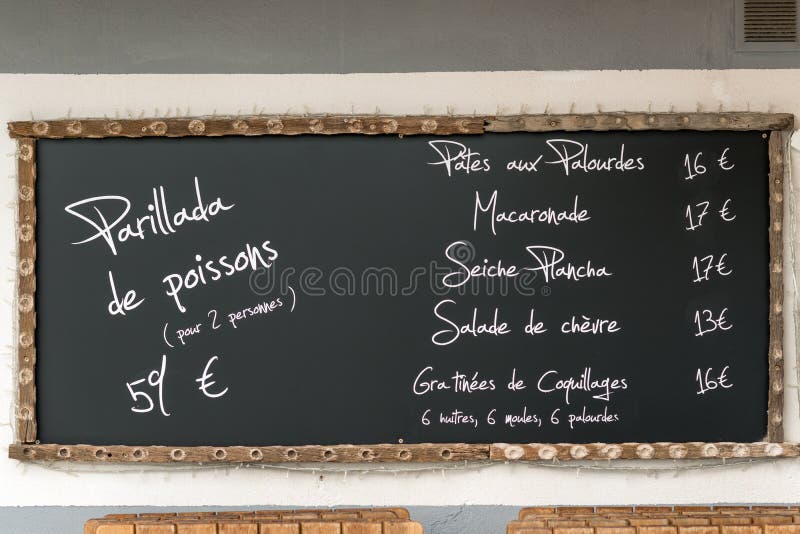 Parillada
de poissons
(pour 2 personnes)
59 €
Pâtes aux Palourdes 16 €
Macaronade 17 €
Seiche Plancha 17€
Salade de chèvre 13€
Gratinées de Coquillages 16€
6 huîtres, 6 moules, 6 palourdes
dreamstime